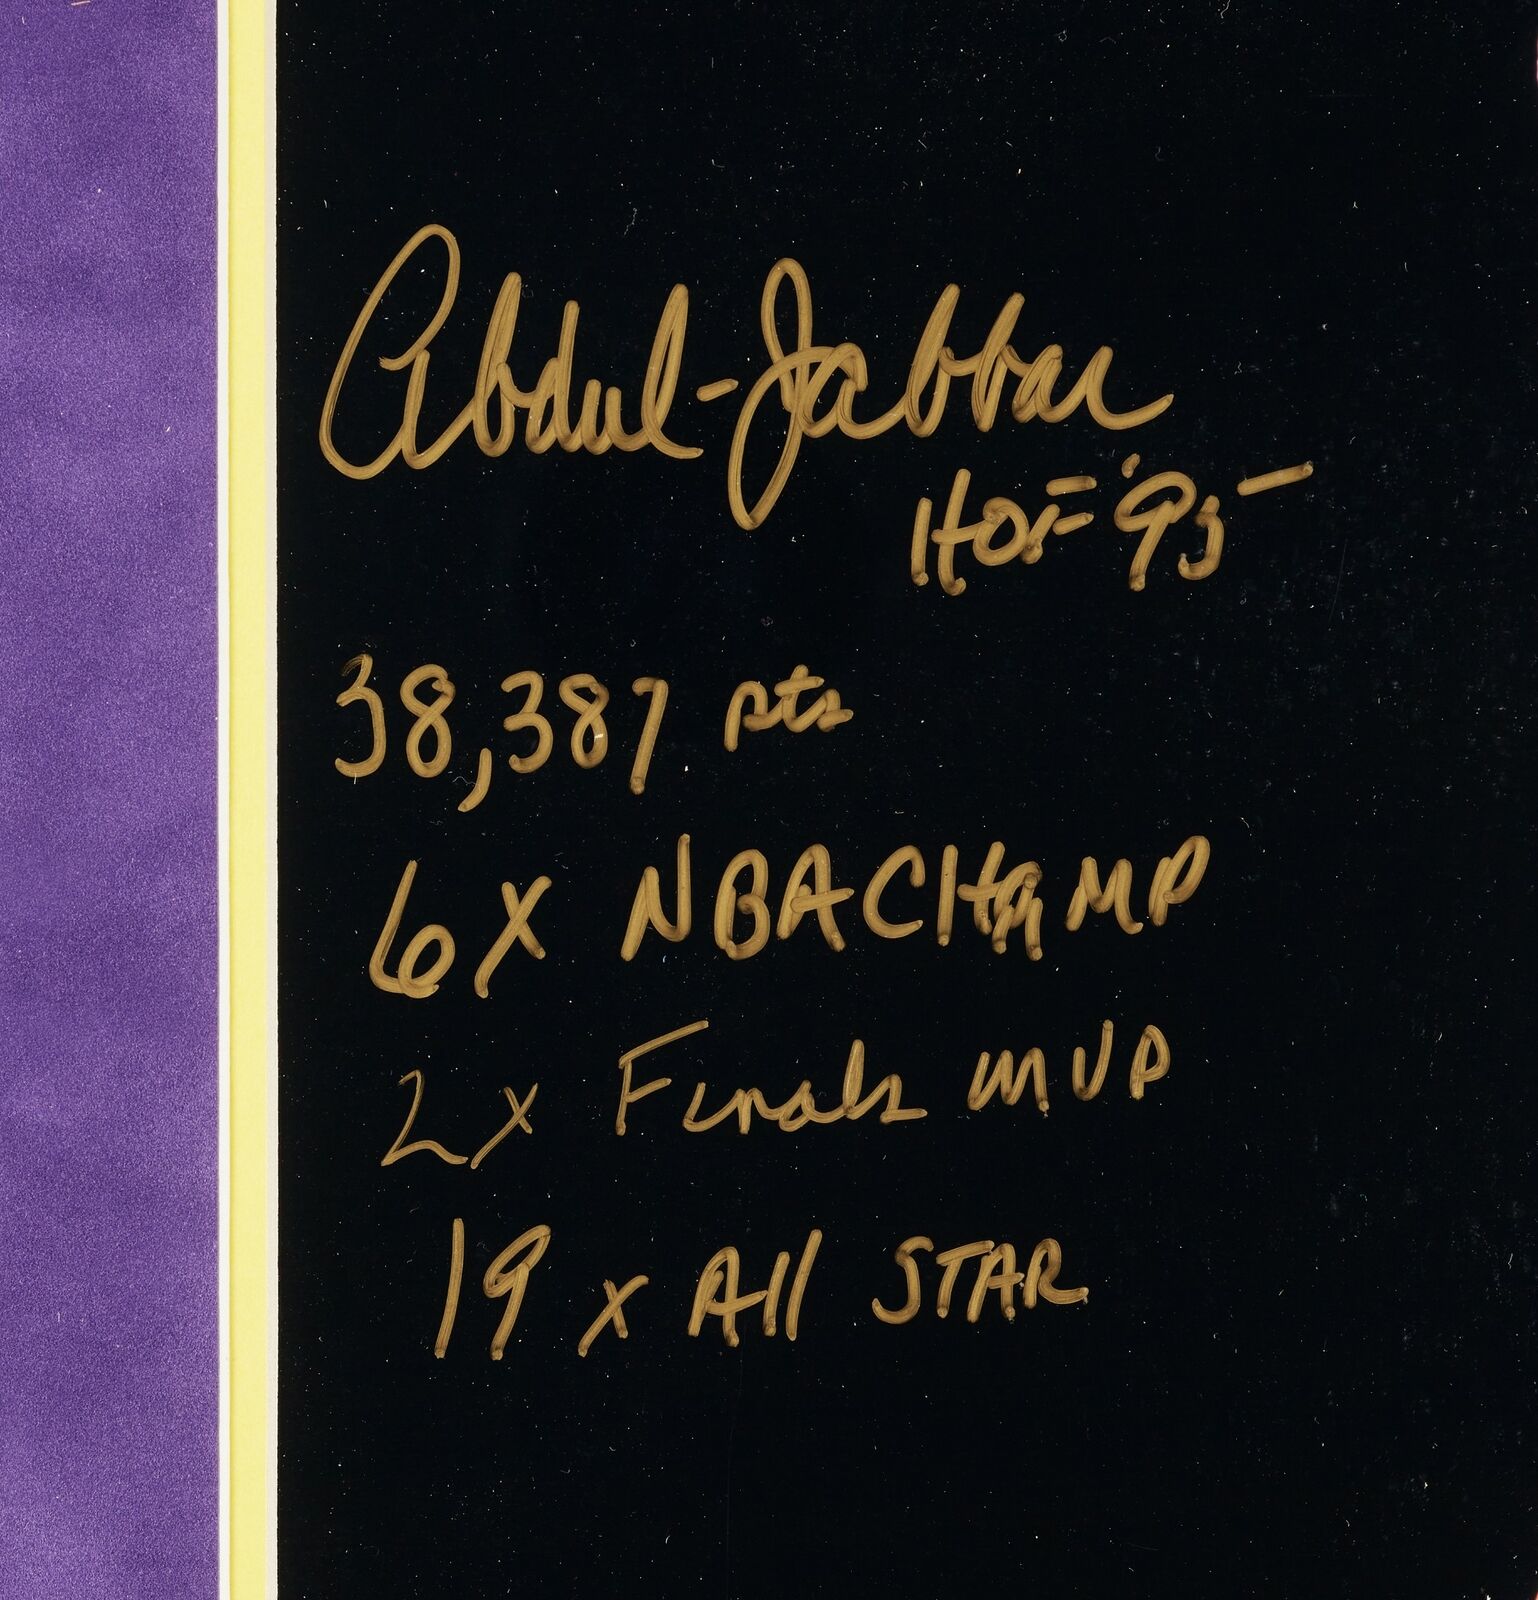 Abdul-Jabbar
HOF '95
38,387 pts
6X NBA CHAMP
2x Finals MVP
19 x All STAR